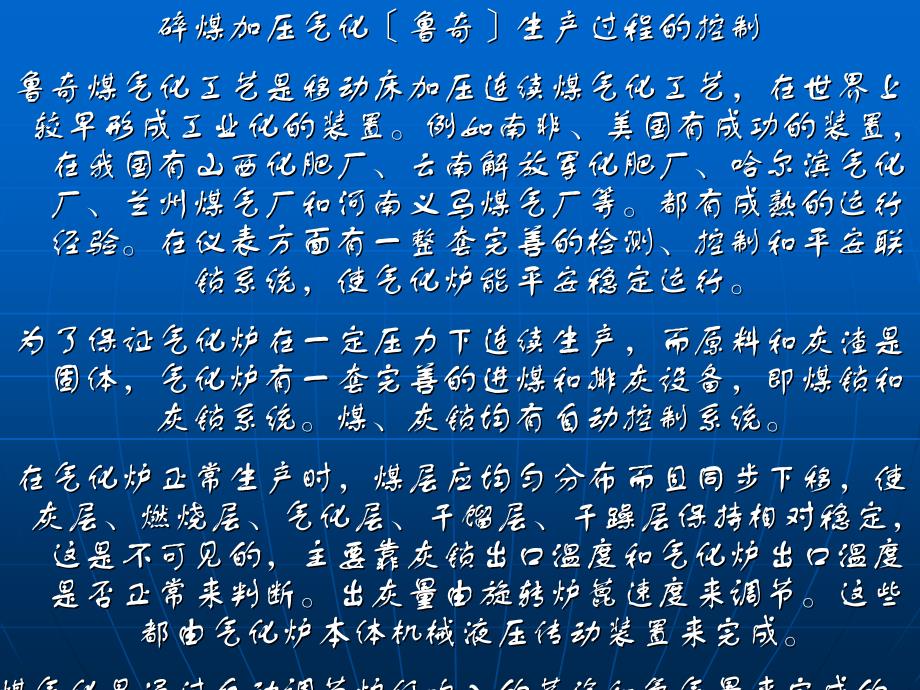 碎煤加压气化〔鲁奇〕生产过程的控制
鲁奇煤气化工艺是移动床加压连续煤气化工艺，在世界上
较早形成工业化的装置。例如南非、美国有成功的装置，
在我国有山西化肥厂、云南解放军化肥厂、哈尔滨气化
厂、兰州煤气厂和河南义马煤气厂等。都有成熟的运行
经验。在仪表方面有一整套完善的检测、控制和平安联
锁系统，使气化炉能平安稳定运行。
为了保证气化炉在一定压力下连续生产，而原料和灰渣是
固体，气化炉有一套完善的进煤和排灰设备，即煤锁和
灰锁系统。煤、灰锁均有自动控制系统。
在气化炉正常生产时，煤层应均匀分布而且同步下移，使
灰层、燃烧层、气化层、干馏层、干躁层保持相对稳定，
这是不可见的，主要靠灰锁出口温度和气化炉出口温度
是否正常来判断。出灰量由旋转炉篦速度来调节。这些
都由气化炉本体机械液压传动装置来完成。
煤气化是通过自动调节炉的内入的蒸汽和氧气量来完成的。